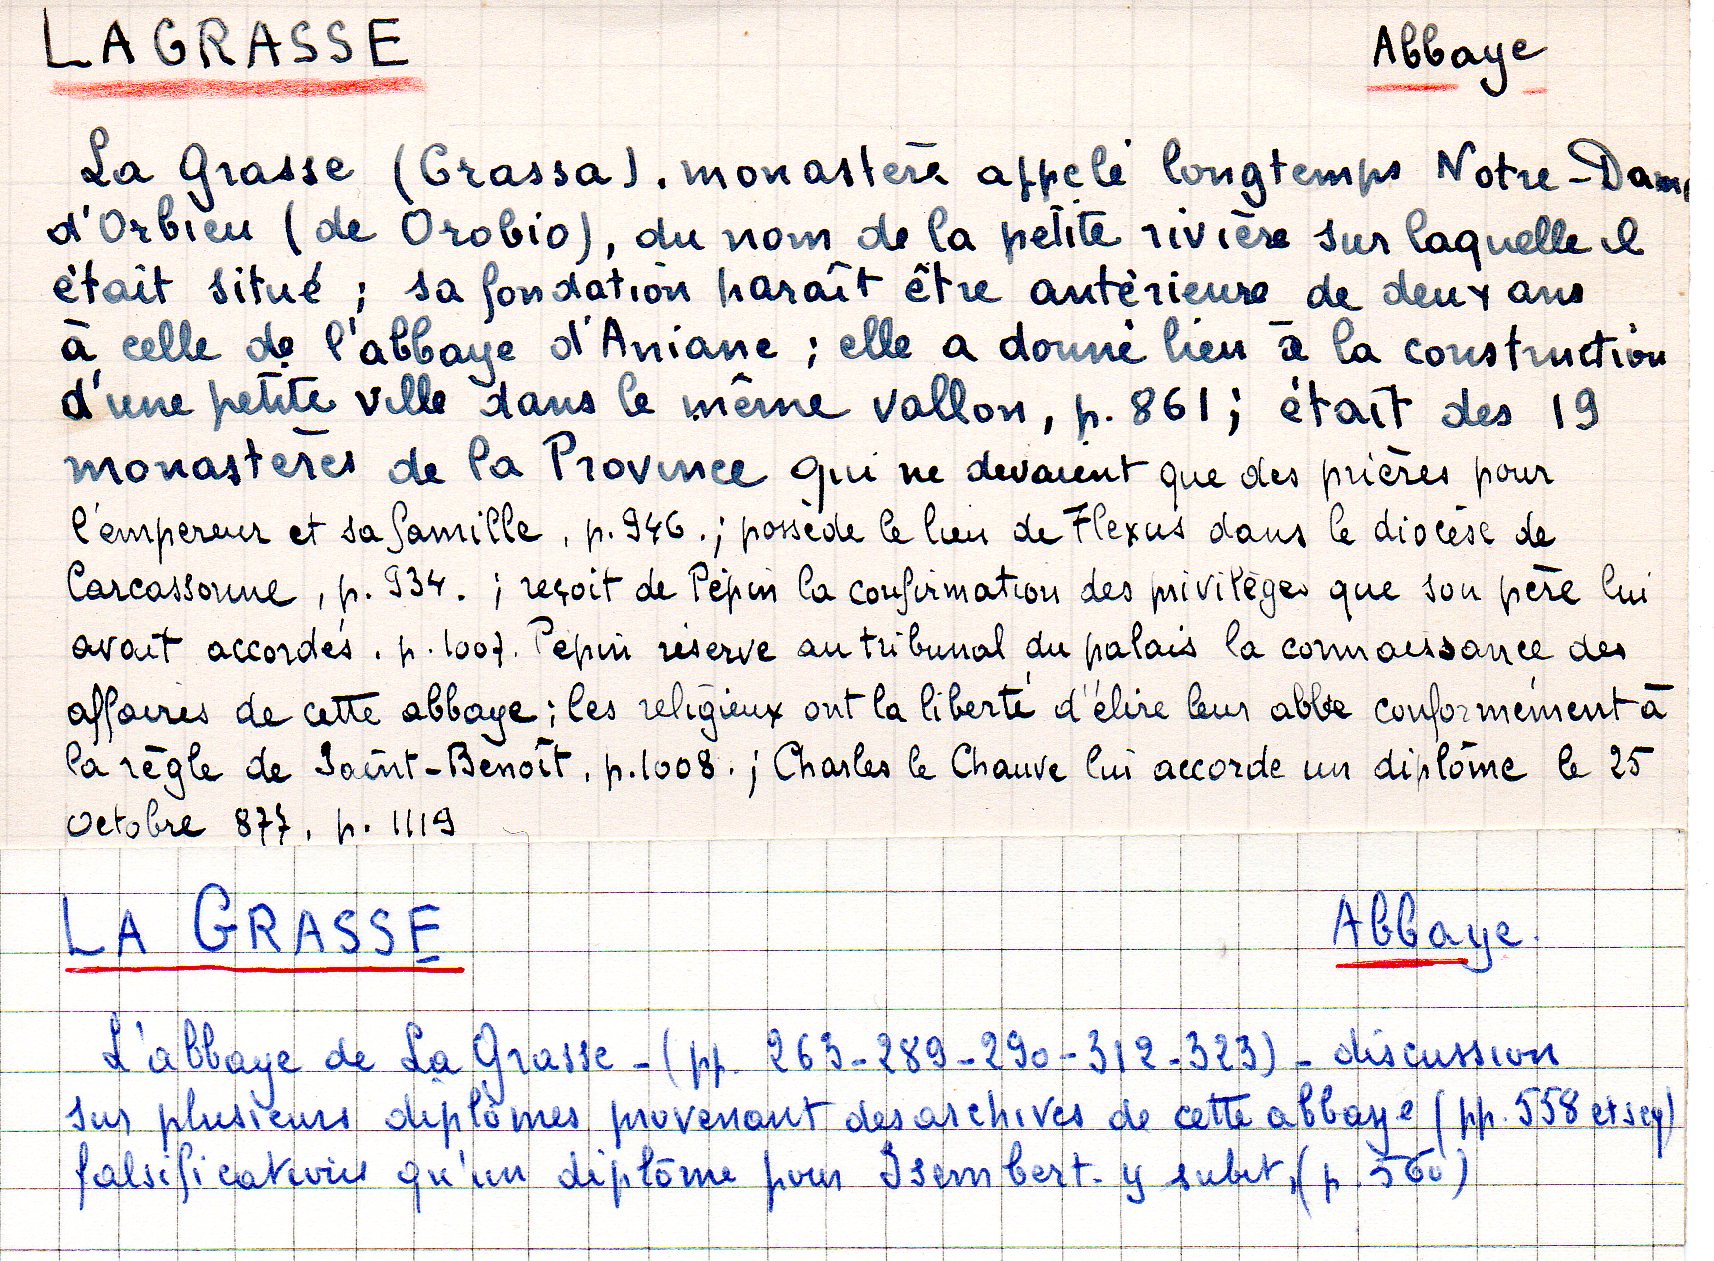 LAGRASSE Abbaye
La Grasse (Crassa). monastère appelé longtemps Notre-Dame
d'Orbieu (de Orobio), du nom de la petite rivière sur laquelle il
était situé ; sa fondation paraît être antérieure de deux ans
à celle de l'abbaye d'Aniane ; elle a donné lieu à la construction
d'une petite ville dans le même vallon, p. 861 ; était des 19
monastères de la Province qui ne devaient que des prières pour
l'empereur et sa famille, p. 946. ; possède le lieu de Flexus dans le diocèse de
Carcassonne, p. 934. ; reçoit de Pépin la confirmation des privilèges que son père lui
avait accordés, p. 1007. Pépin réserve au tribunal du palais la connaissance des
affaires de cette abbaye ; les religieux ont la liberté d'élire leur abbé conformément à
la règle de Saint-Benoît, p. 1008. ; Charles le Chauve lui accorde un diplôme le 25
octobre 877, p. 1119
LA GRASSE Abbaye.
L'abbaye de La Grasse - (pp. 263-289-290-312-323) - discussion
sur plusieurs diplômes provenant des archives de cette abbaye (pp. 558 et seq)
falsifications qu'un diplôme pour Isembert y subit, (p. 560)